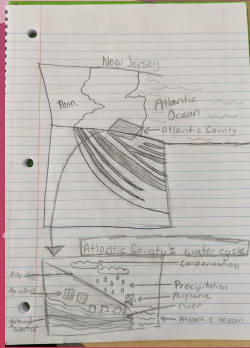 New Jersey
Penn.
Atlantic
Ocean
Atlantic County
Atlantic County's water cycle
condensation
Precipitation
Airplane
river
ground
water
Atlantic ocean